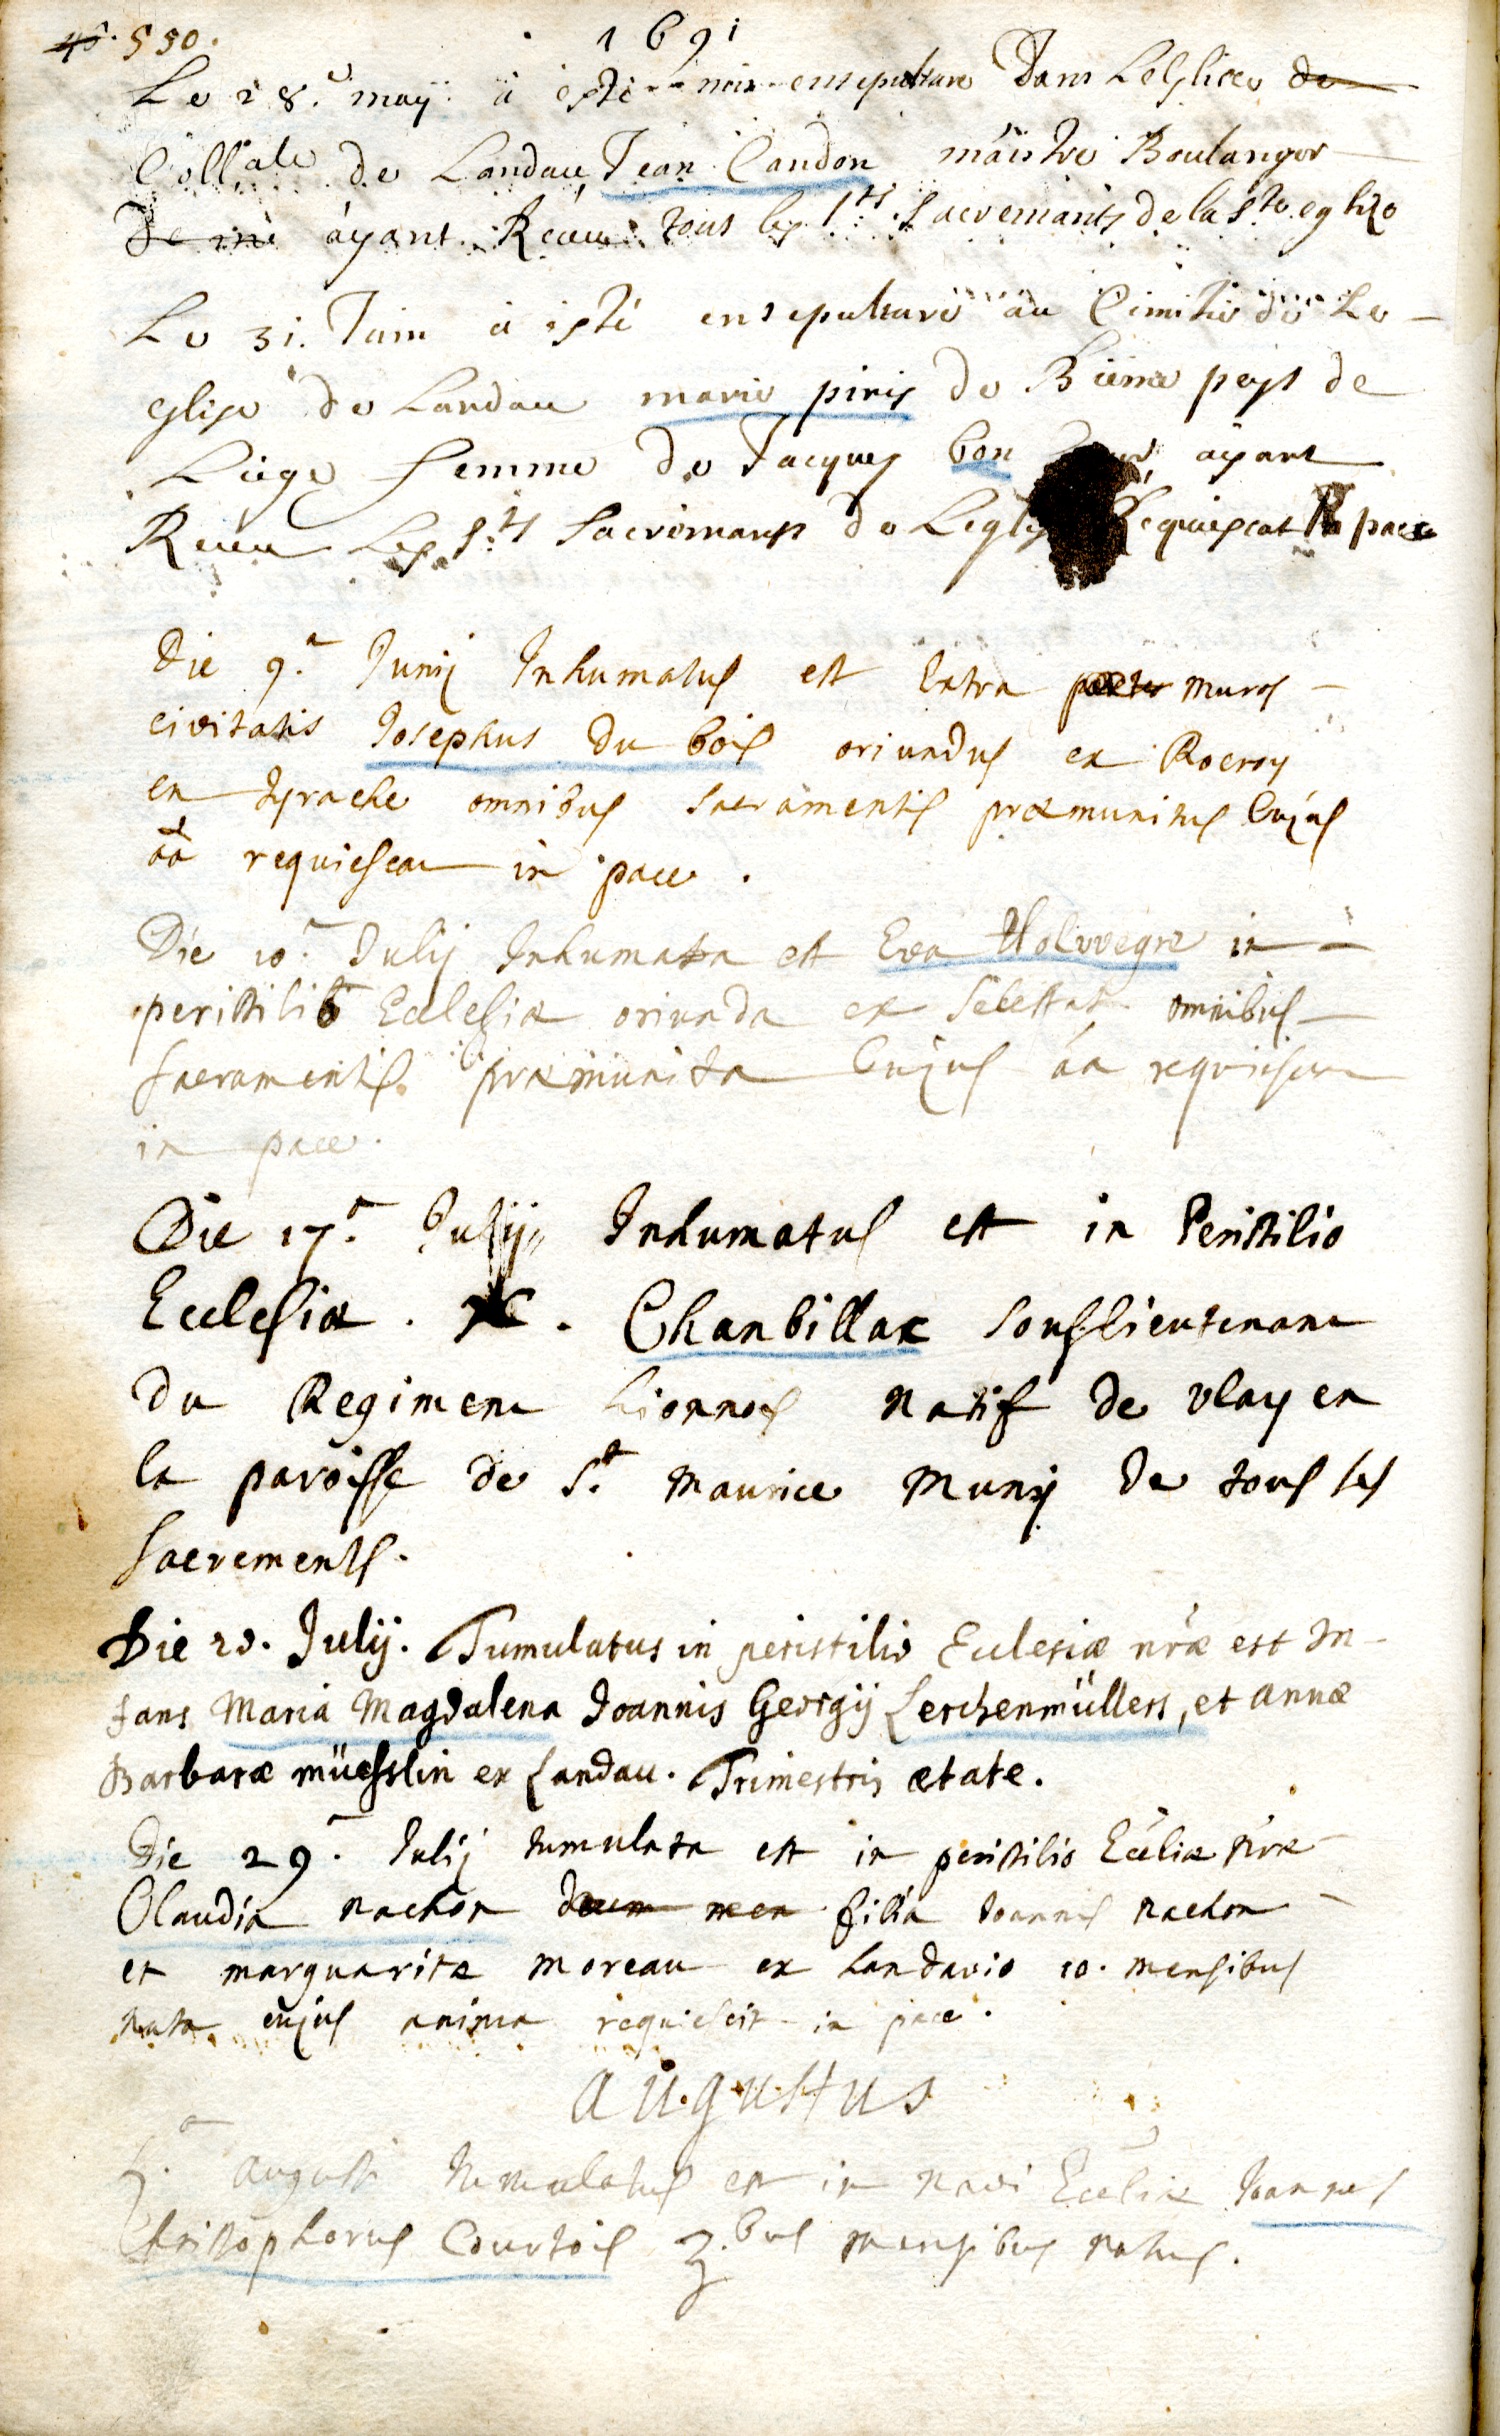 550.
1691
Le 28.e may à esté mis ensepulture Dans Leglice de
Coll.ale de Landau Jean Candon maistre Boulanger
ayant Receu tous les Sts. Sacremants de la Ste. eglize
Le 31. Juin à esté ensepulturé au Cimitié de Le-
glise de Landau marie piris de pays de
Liege femme de Jacques bon ayant
Receu Les Sts Sacremants de Requiescat In pace
Die 9.a Junij Inhumatus est Extra muros
civitatis Josephus du bois oriundus ex Rocroy
en tyrache omnibus sacramentis præmunitus Cujus
aa requiescat in pace.
Die 10.a Julij Inhumata est Eva Holvvegre in
peristilio Ecclesiæ oriunda ex Selestat omnibus
sacramentis præmunita Cujus aa requiescat
in pace.
Die 17.a Julij Inhumatus est in Peristilio
Ecclesiæ . . Chanbillac souslieutenant
du Regiment Lionnois natif de vlay en
la paroisse de St. Maurice Muny de tous ses
sacrements.
Die 25. Julij. Tumulatus in peristilio Ecclesiæ nræ est In-
fans Maria Magdalena Joannis Georgij Lerchenmüllers, et annæ
Barbaræ müesslin ex Landau. Trimestris ætate.
Die 29.a Julij tumulata est in peristilio Eccliæ nræ
Claudia nachon filia Joannis nachon
et marguaritæ moreau ex Landavio 10. mensibus
nata cujus anima requiescit in pace.
Augustus
augusti tumulatus est in navi Eccliæ Joannes
Christophorus Courtois 3.bus mensibus natus.